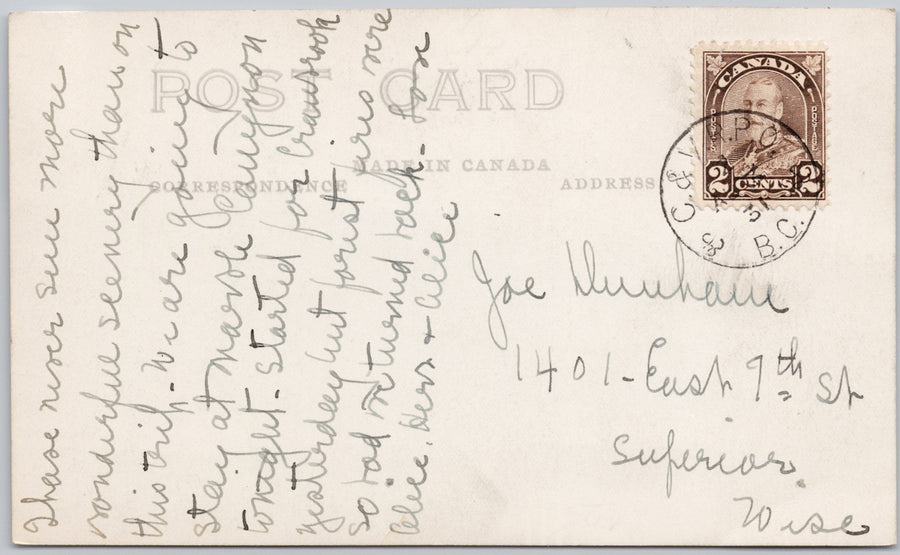 POST CARD
MADE IN CANADA
CORRESPONDENCE
ADDRESS
CANADA
POSTES
POSTAGE
2 CENTS 2
R.P.O.
B.C.
I have never seen more
wonderful scenery than on
this trip. We are going to
stay at Marble Canyon
tonight. Started for Cranbrook
yesterday but forest fires were
so bad we turned back. Love
Alice, & Alice
Joe Dunham
1401 - East 9th St
Superior
Wisc